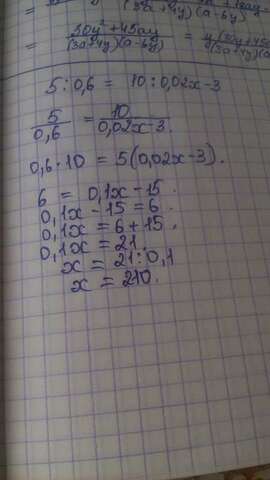 (3a+4y)(a-6y)
= 30y²+45ay / (3a+4y)(a-6y) = y(30y+45
5 : 0,6 = 10 : 0,02x-3
5 / 0,6 = 10 / 0,02x-3.
0,6·10 = 5(0,02x-3).
6 = 0,1x-15.
0,1x-15=6.
0,1x = 6+15.
0,1x = 21.
x = 21:0,1
x = 210.